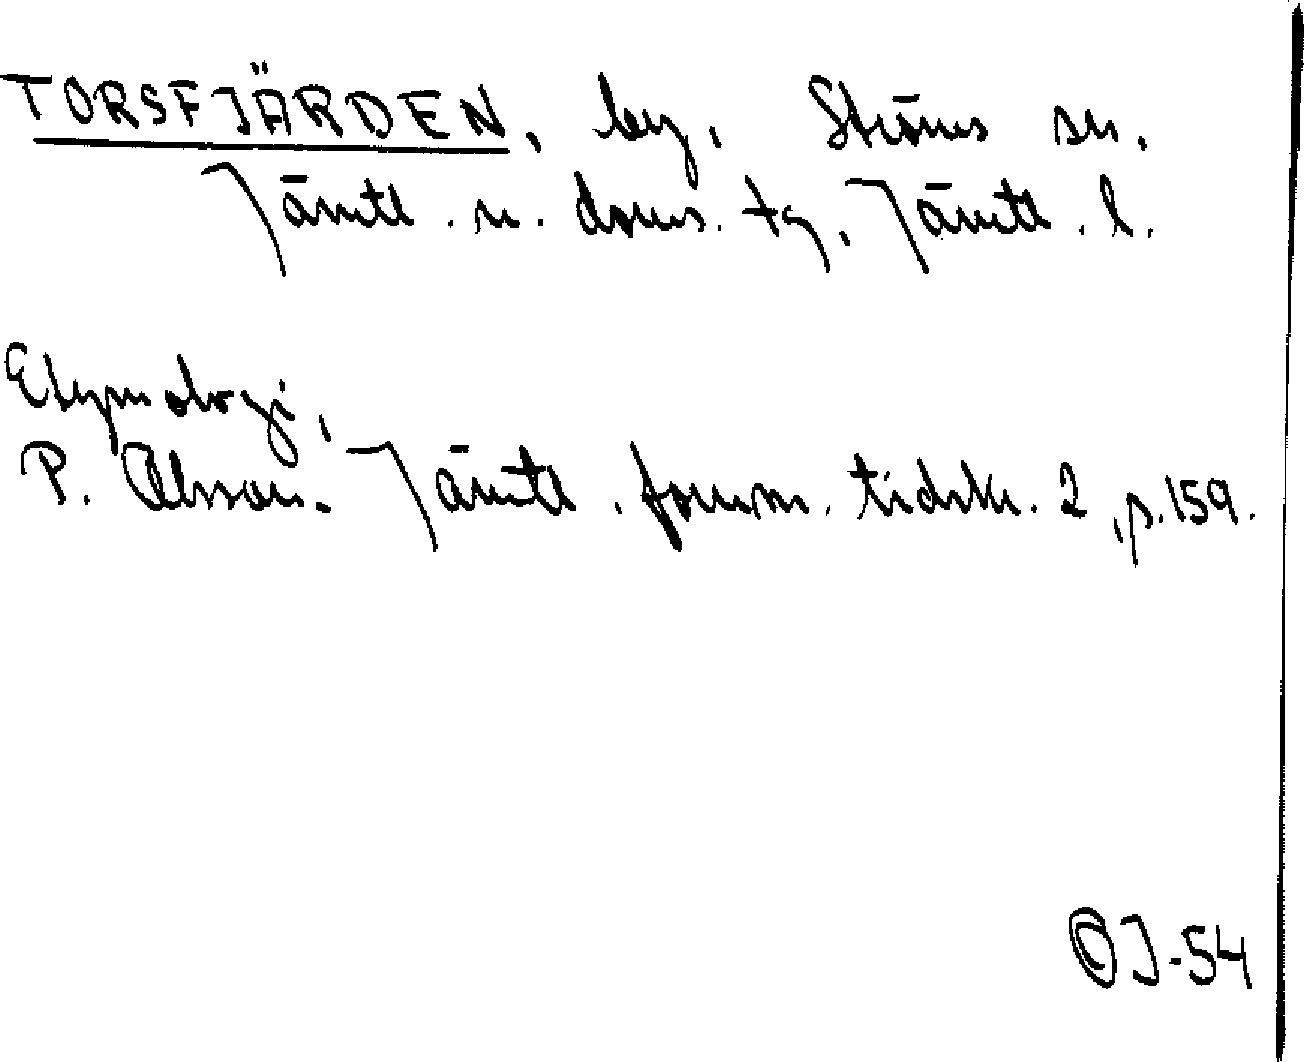 TORSFJÄRDEN, by, Ströms sn.
Jämtl. n. doms. tg, Jämtl. l.
Etymologi,
P. Olsson. Jämtl. fornm. tidskr. 2, p. 159.
OJ-54